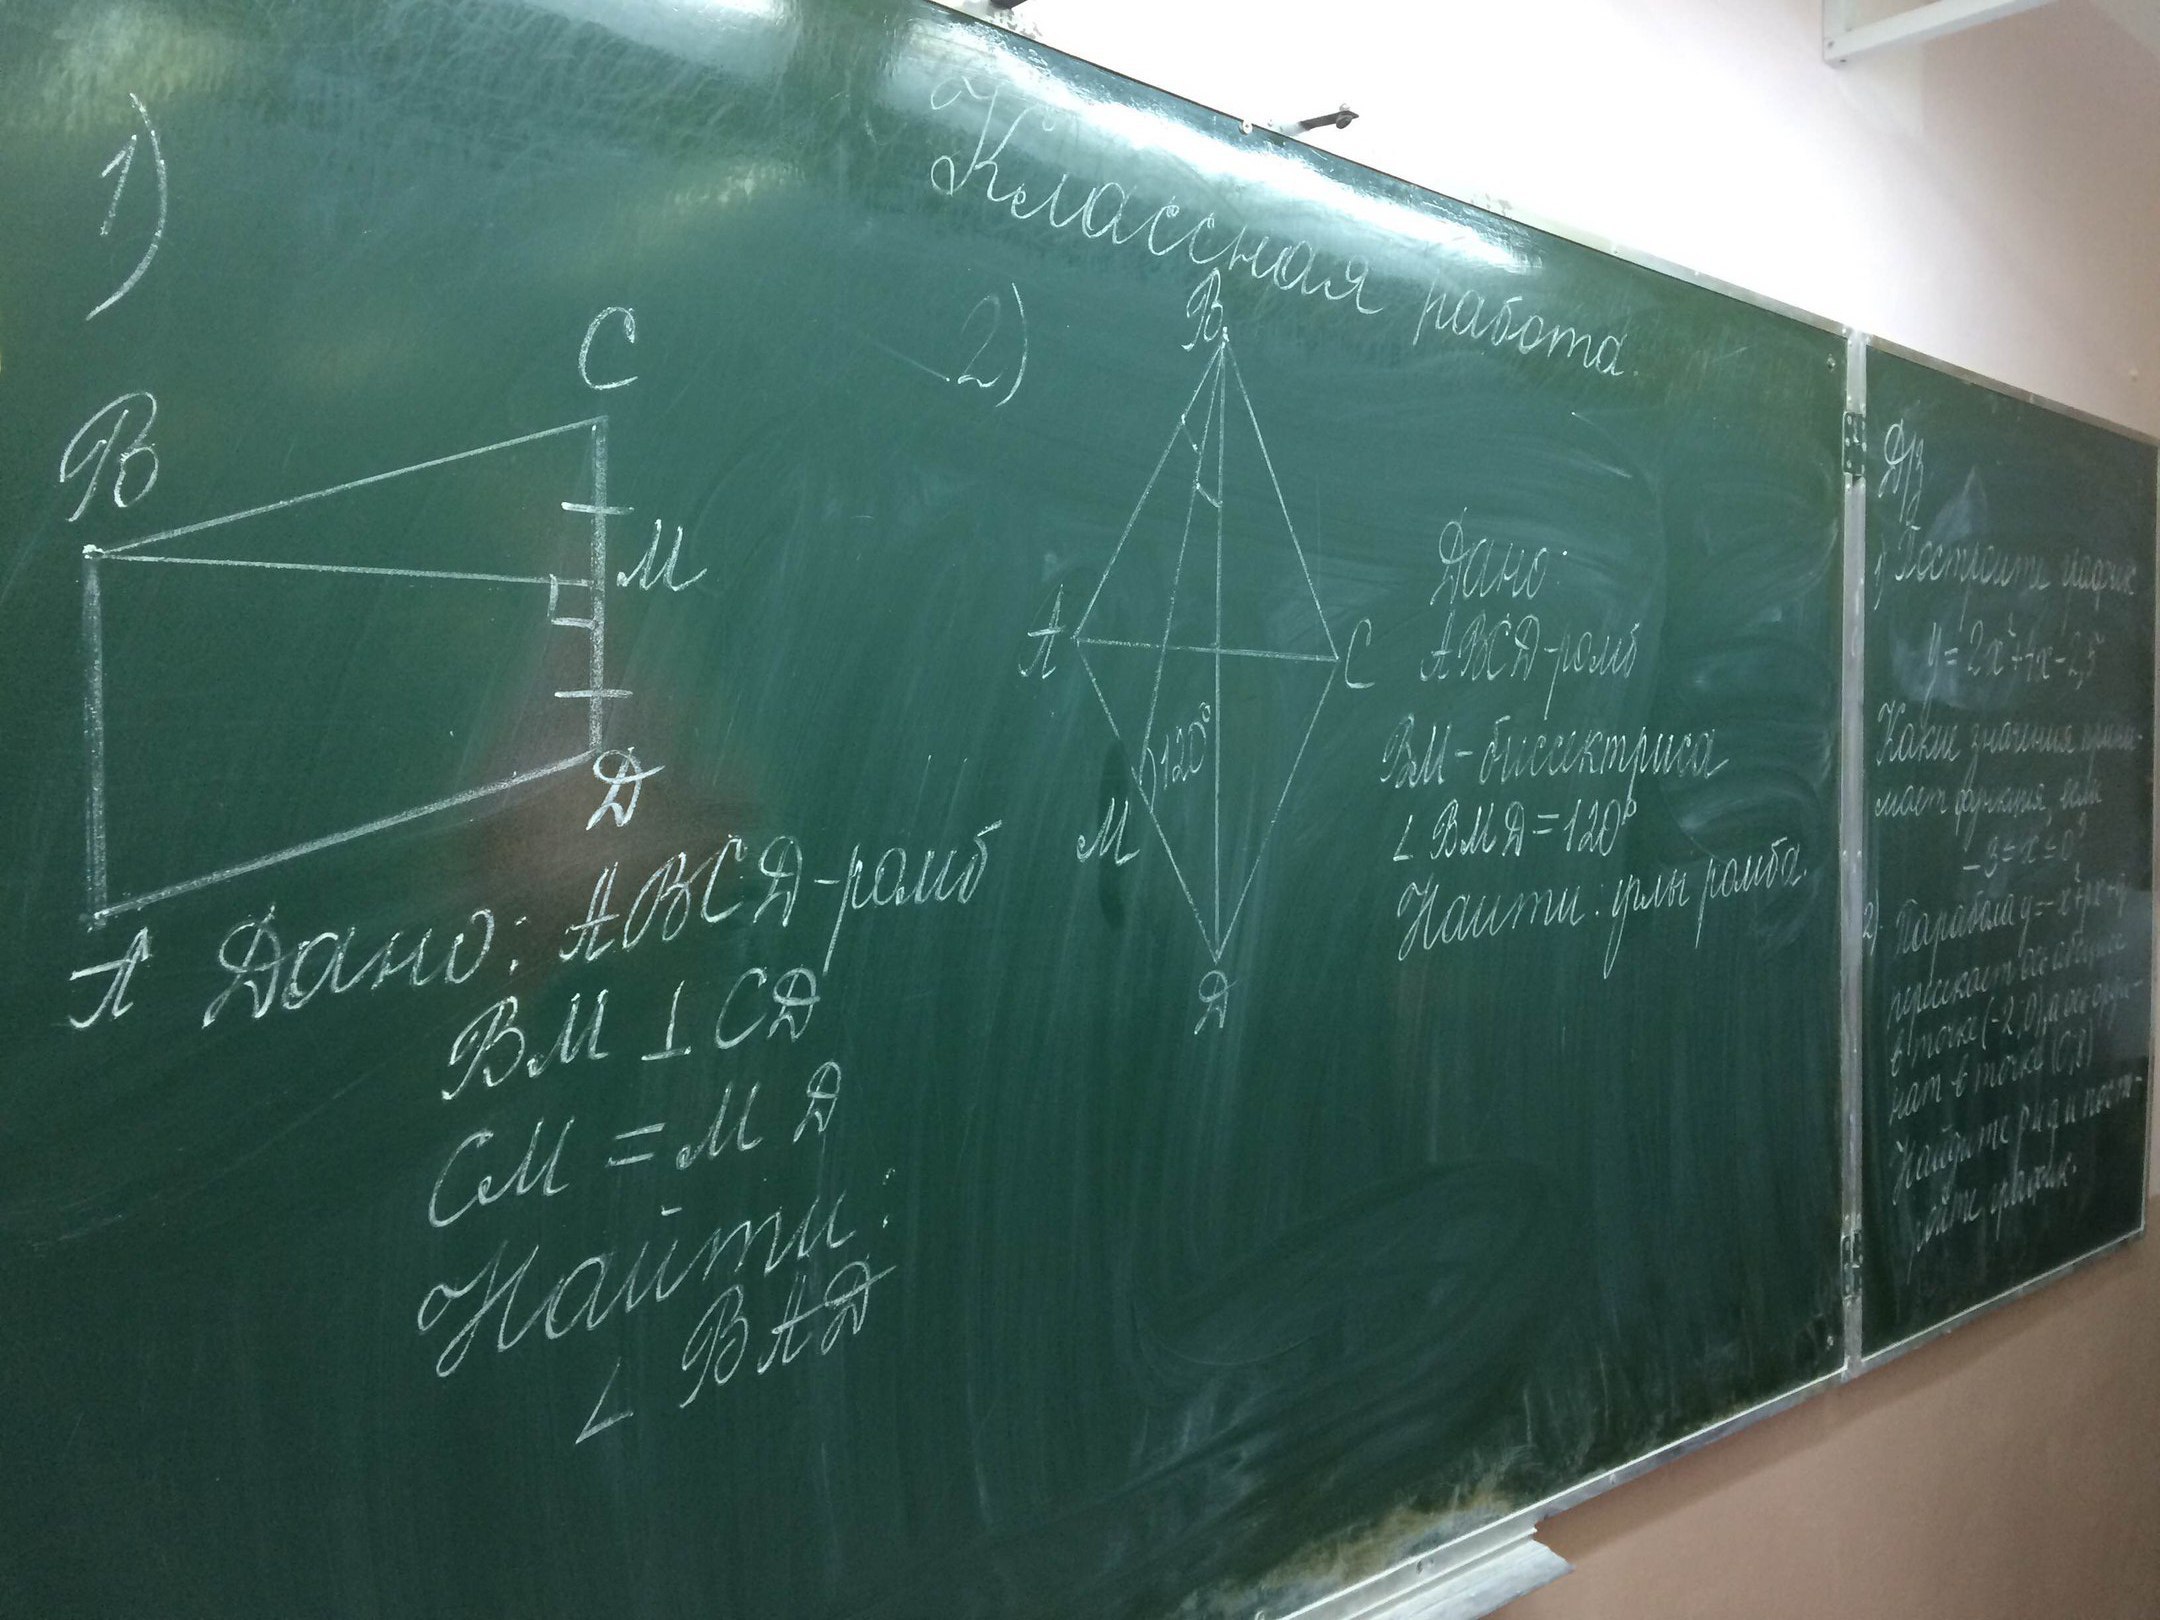 Классная работа.
1)
B
C
M
D
A
Дано: ABCD-ромб
BM ⊥ CD
CM = MD
Найти:
∠ BAD
2)
B
A
C
120°
M
D
Дано:
ABCD-ромб
BM-биссектриса
∠ BMD=120°
Найти: углы ромба.
Д/З
1) Постройте график
y=2x²+4x-2,5
Какие значения прини-
мает функция, если
-3≤x≤0?
2) Парабола y=-x²+px+q
пересекает ось абсцисс
в точке (-2;0), а ось орди-
нат в точке (0;8)
Найдите p и q и пост-
ройте график.